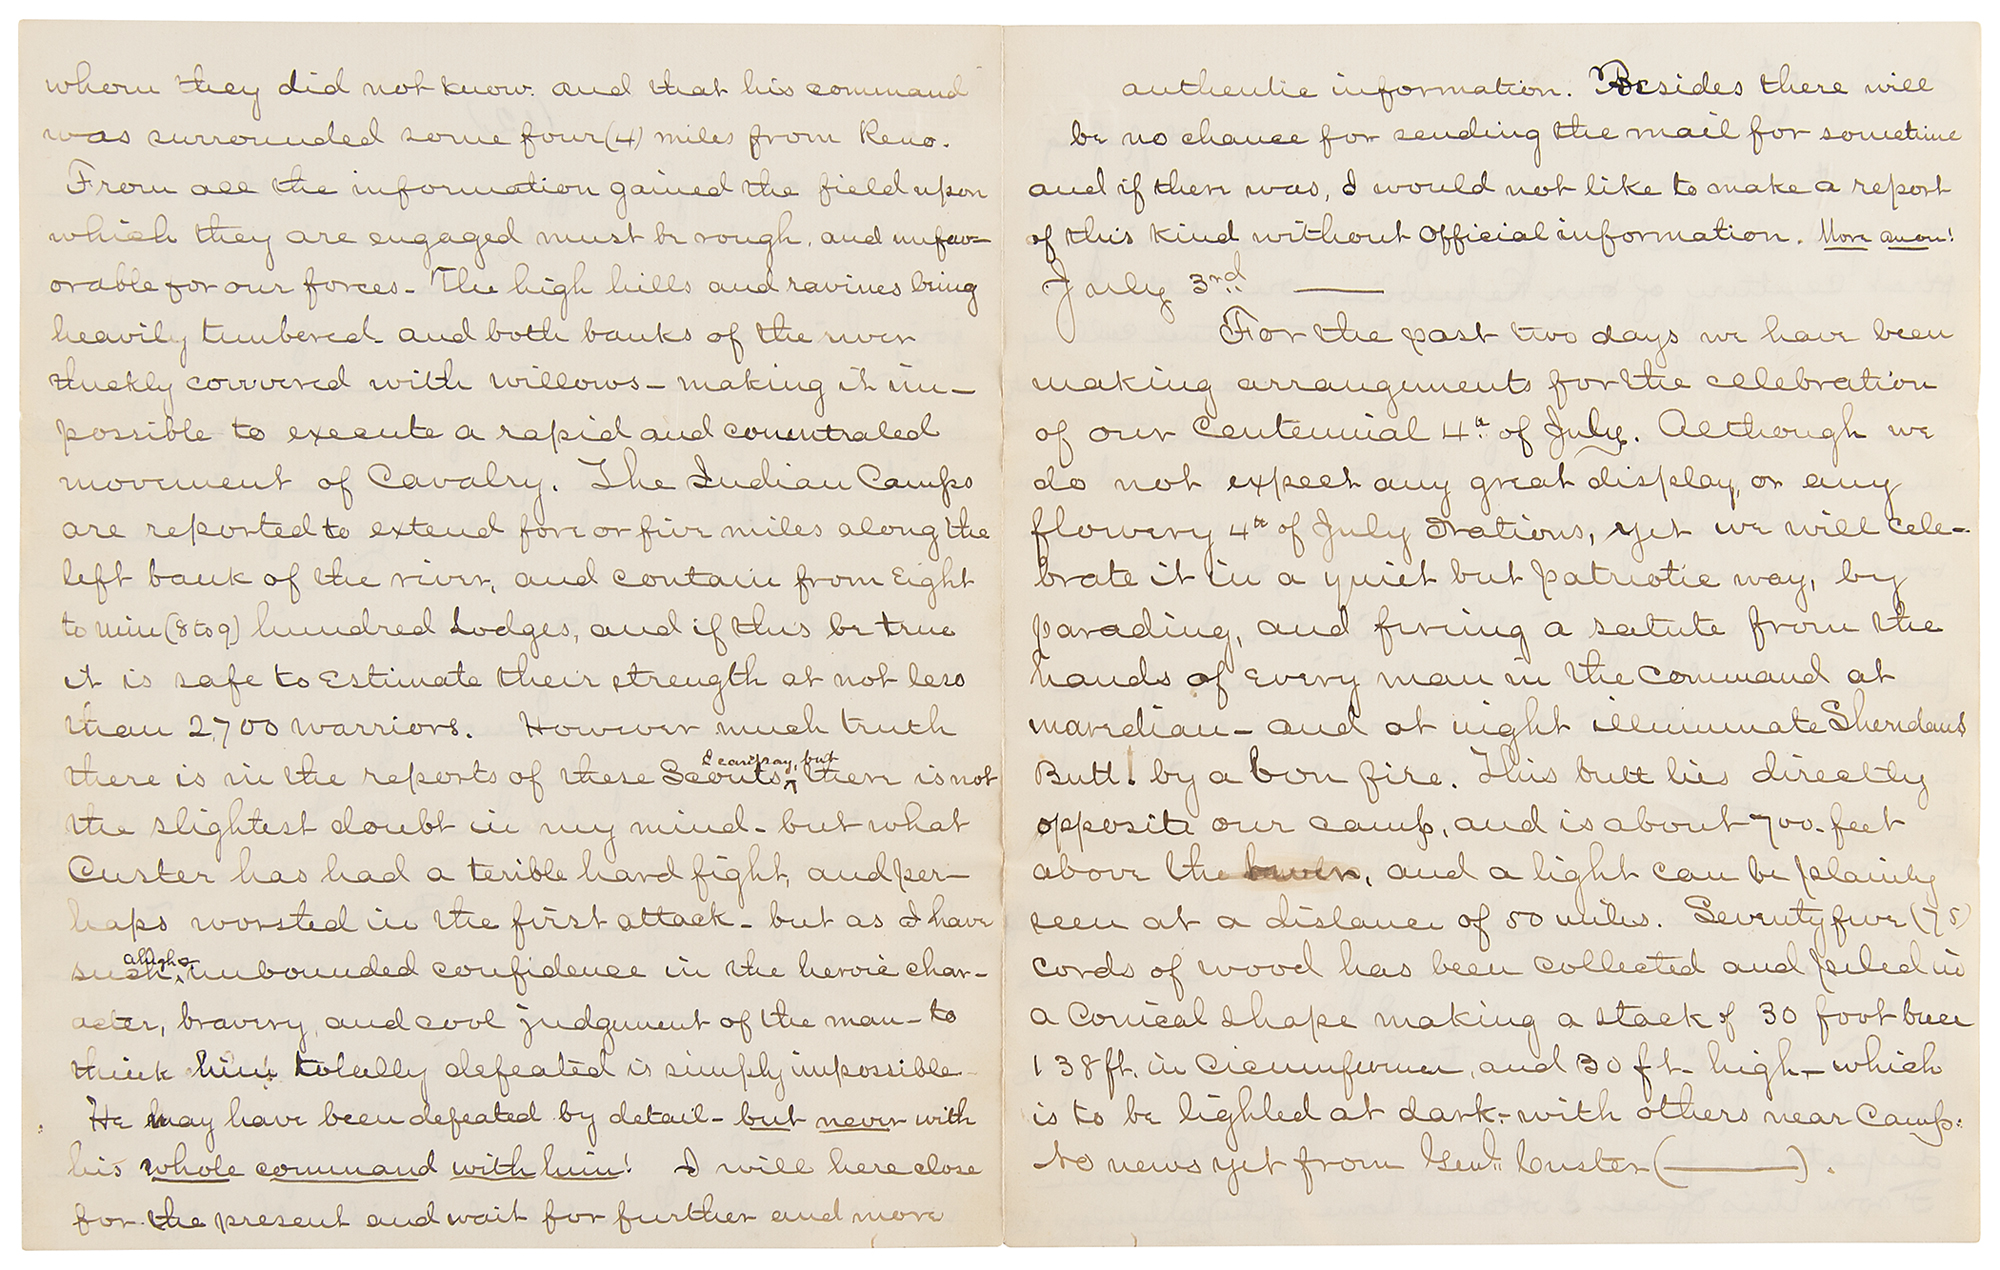 whom they did not know. and that his command
was surrounded some four (4) miles from Reno.
From all the information gained the field upon
which they are engaged must be rough, and unfav=
orable for our forces - The high hills and ravines being
heavily timbered - and both banks of the river
thickly couvered with willows - making it im-
possible to execute a rapid and concentraled
movement of Cavalry. The Indian Camps
are reported to extend fore or five miles along the
left bank of the river, and contain from Eight
to nine (8 to 9) hundred Lodges, and if this be true
it is safe to Estimate their strength at not less
than 2,700 warriors. However much truth
there is in the reports of these Scouts, I cant say, but there is not
the slightest doubt in my mind - but what
Custer has had a terible hard fight, and per-
haps worsted in the first attack - but as I have
such, unbounded confidence in the heroic char-
acter, bravery, and cool judgment of the man - to
think him! totally defeated is simply impossible -
He may have been defeated by detail - but never with
his whole command with him! I will here close
for the present and wait for further and more
authentic information. Besides there will
be no chance for sending the mail for sometime
and if there was, I would not like to make a report
of this kind without Official information. More anon!
July 3rd. —
For the past two days we have been
making arrangements for the celebration
of our Centennial 4th. of July. Although we
do not expect any great display, or any
flowery 4th of July Orations, yet we will cele-
brate it in a quiet but patriotic way, by
parading, and fireing a salute from the
hands of every man in the command at
maredian - and at night illuminate Sheridans
Butt! by a bon fire. This butt lies directly
opposite our camp, and is about 700 - feet
above the, and a light can be plainly
seen at a distance of 50 miles. Seventy five (75)
cords of wood has been collected and piled in
a Conical shape making a stack of 30 foot base
138 ft. in Circumference, and 30 ft - high - which
is to be lighled at dark - with others near Camp.
No news yet from Genl. Custer (—).